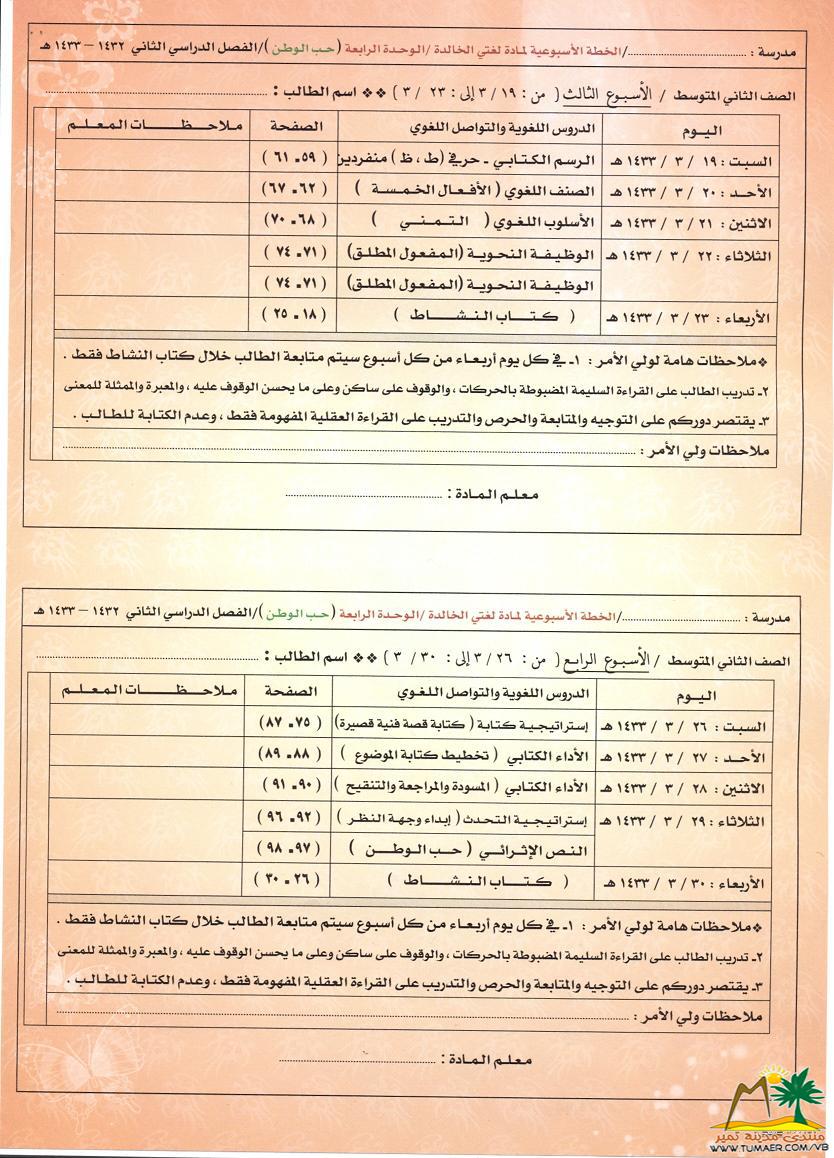 مدرسة : ............................../الخطة الأسبوعية لمادة لغتي الخالدة /الوحدة الرابعة (حب الوطن)/الفصل الدراسي الثاني ١٤٣٢ – ١٤٣٣ هـ
الصف الثاني المتوسط / الأسبوع الثالث ( من : ١٩ /٣ إلى : ٢٣ / ٣ ) ❖❖ اسم الطالب : ..............................
اليوم الدروس اللغوية والتواصل اللغوي الصفحة ملاحظات المعلم
السبت : ١٩ / ٣ / ١٤٣٣ هـ الرسم الكتابي ـ حرفي (ط ، ظ ) منفردين ( ٥٩ـ ٦١ )
الأحد : ٢٠ / ٣ / ١٤٣٣ هـ الصنف اللغوي ( الأفعال الخمسة ) ( ٦٢ـ ٦٧ )
الاثنين : ٢١ / ٣ / ١٤٣٣ هـ الأسلوب اللغوي ( التمني ) ( ٦٨ـ ٧٠ )
الثلاثاء : ٢٢ / ٣ / ١٤٣٣ هـ الوظيفة النحوية (المفعول المطلق) ( ٧١ـ ٧٤ )
الوظيفة النحوية (المفعول المطلق) ( ٧١ـ ٧٤ )
الأربعاء : ٢٣ / ٣ / ١٤٣٣ هـ ( كتاب النشاط ) ( ١٨ـ ٢٥ )
❖ملاحظات هامة لولي الأمر : ١ـ في كل يوم أربعاء من كل أسبوع سيتم متابعة الطالب خلال كتاب النشاط فقط .
٢ـ تدريب الطالب على القراءة السليمة المضبوطة بالحركات ، والوقوف على ساكن وعلى ما يحسن الوقوف عليه ، والمعبرة والممثلة للمعنى
٣ـ يقتصر دوركم على التوجيه والمتابعة والحرص والتدريب على القراءة العقلية المفهومة فقط ، وعدم الكتابة للطالب .
ملاحظات ولي الأمر : ..............................
معلم المادة : ..............................
مدرسة : ............................../الخطة الأسبوعية لمادة لغتي الخالدة /الوحدة الرابعة (حب الوطن)/الفصل الدراسي الثاني ١٤٣٢ – ١٤٣٣ هـ
الصف الثاني المتوسط / الأسبوع الرابع ( من : ٢٦ /٣ إلى : ٣٠ / ٣ ) ❖❖ اسم الطالب : ..............................
اليوم الدروس اللغوية والتواصل اللغوي الصفحة ملاحظات المعلم
السبت : ٢٦ / ٣ / ١٤٣٣ هـ إستراتيجية كتابة ( كتابة قصة فنية قصيرة) ( ٧٥ـ ٨٧ )
الأحد : ٢٧ / ٣ / ١٤٣٣ هـ الأداء الكتابي ( تخطيط كتابة الموضوع ) ( ٨٨ـ ٨٩ )
الاثنين : ٢٨ / ٣ / ١٤٣٣ هـ الأداء الكتابي ( المسودة والمراجعة والتنقيح ) ( ٩٠ـ ٩١ )
الثلاثاء : ٢٩ / ٣ / ١٤٣٣ هـ إستراتيجية التحدث ( إبداء وجهة النظر ) ( ٩٢ـ ٩٦ )
النص الإثرائي ( حب الوطن ) ( ٩٧ـ ٩٨ )
الأربعاء : ٣٠ / ٣ / ١٤٣٣ هـ ( كتاب النشاط ) ( ٢٦ـ ٣٠ )
❖ملاحظات هامة لولي الأمر : ١ـ في كل يوم أربعاء من كل أسبوع سيتم متابعة الطالب خلال كتاب النشاط فقط .
٢ـ تدريب الطالب على القراءة السليمة المضبوطة بالحركات ، والوقوف على ساكن وعلى ما يحسن الوقوف عليه ، والمعبرة والممثلة للمعنى
٣ـ يقتصر دوركم على التوجيه والمتابعة والحرص والتدريب على القراءة العقلية المفهومة فقط ، وعدم الكتابة للطالب .
ملاحظات ولي الأمر : ..............................
معلم المادة : ..............................
منتدى مدينة تمير
WWW.TUMAER.COM/VB